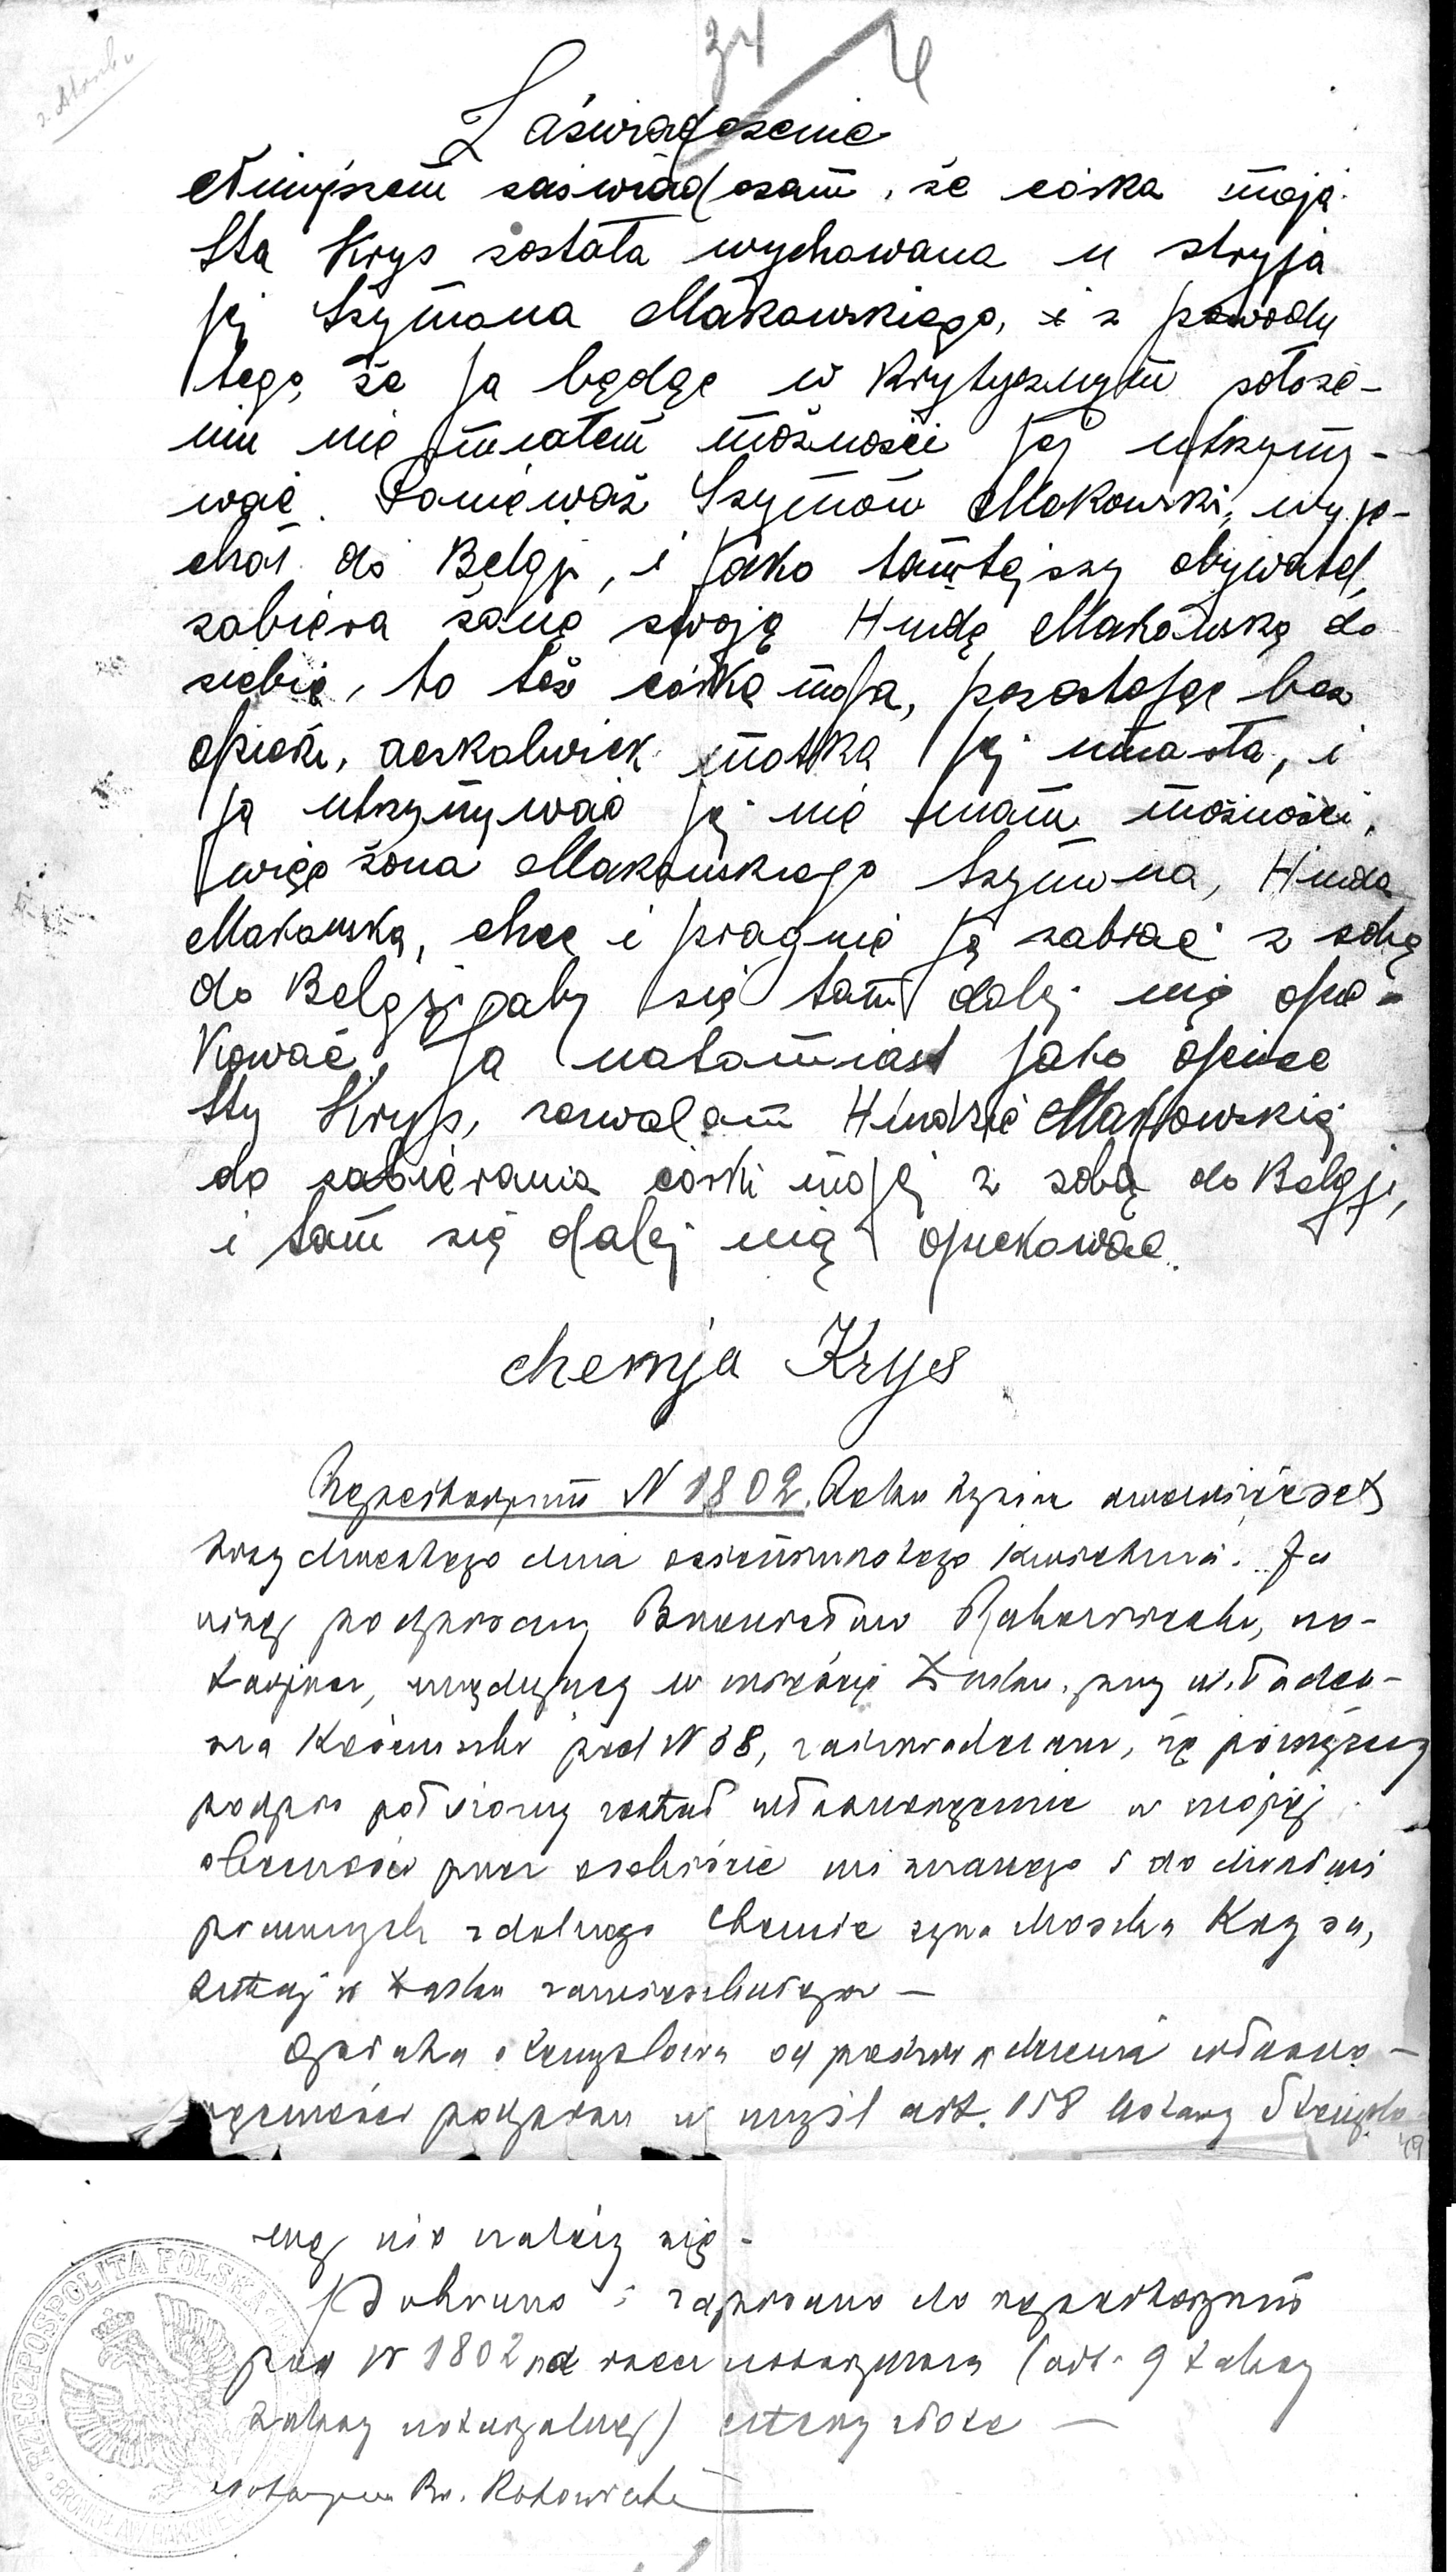 34
Zaświadczenie
Niniejszem zaświadczam, że córka moja
Ita Krys została wychowana u stryja
jej Szymona Makowskiego, i z powodu
tego, że ja będąc w krytycznym położe-
niu nie miałem możności jej utrzymy-
wać. Ponieważ Szymon Makowski, wyje-
chał do Belgji, i jako tamtejszy obywatel,
zabiera żonę swoją Hindę Makowską do
siebie, to też córka moja, pozostając bez
opieki, aczkolwiek matka jej umarła, i
ja utrzymywać jej nie mam możności,
więc żona Makowskiego Szymona, Hinda
Makowska, chce i pragnie ją zabrać z sobą
do Belgji aby się tam dalej nią opie-
kować, ja natomiast jako ojciec
Ity Krys, zezwalam Hindzie Makowskiej
do zabierania córki mojej z sobą do Belgji,
i tam się dalej nią opiekować.
chemja Krys
Repertorjum N 1802. Roku tysiąc dziewięćset
trzydziestego dnia osiemnastego kwietnia. Ja
niżej podpisany Bronisław Rakowiecki, no-
tarjusz, urzędujący w mieście Łasku, przy ul. Tadeu-
sza Kościuszki pod N 38, zaświadczam, że powyższy
podpis położony został własnoręcznie w mojej
obecności przez osobiście mi znanego i do działań
prawnych zdolnego Chemie syna Moszka Krysa,
tutaj w Łasku zamieszkałego —
Opłata stemplowa od poświadczenia własno-
ręczności podpisu w myśl art. 158 Ustawy Stemplo-
49
wej nie należy się -
Pobrano i zapisano do repertorjum
pod N 1802 na rzecz notarjusza (art. 9
taksy notarjalnej) cztery złote —
Notarjusz Br. Rakowiecki
RZECZPOSPOLITA POLSKA